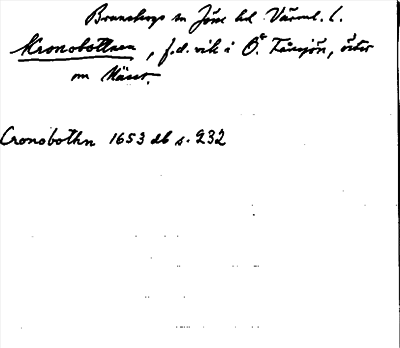 Brunskogs sn Jösse hd Värml. l.
Kronobottnen, f.d. vik i Ö. Fånsjön, öster
om
Cronobothn 1653 db s. 232